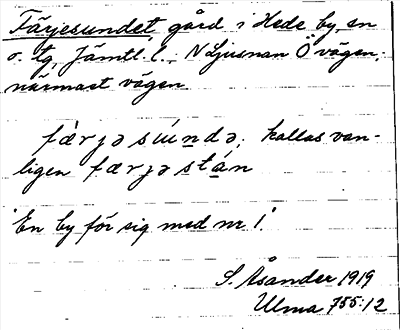 Färjesundet gård i Hede by, en
o. tg, Jämtl. l.; N Ljusnan Ö vägen;
närmast vägen
færjəsúndə; kallas van-
ligen færjəstán
"En by för sig med nr 1."
S. Åsander 1919
Ulma 755:12